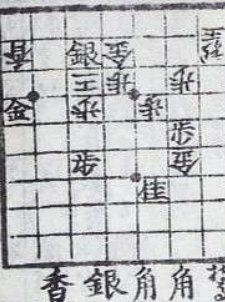 香 銀 金
三 歩 歩
金 歩 歩
歩
歩 金
桂
香銀角角